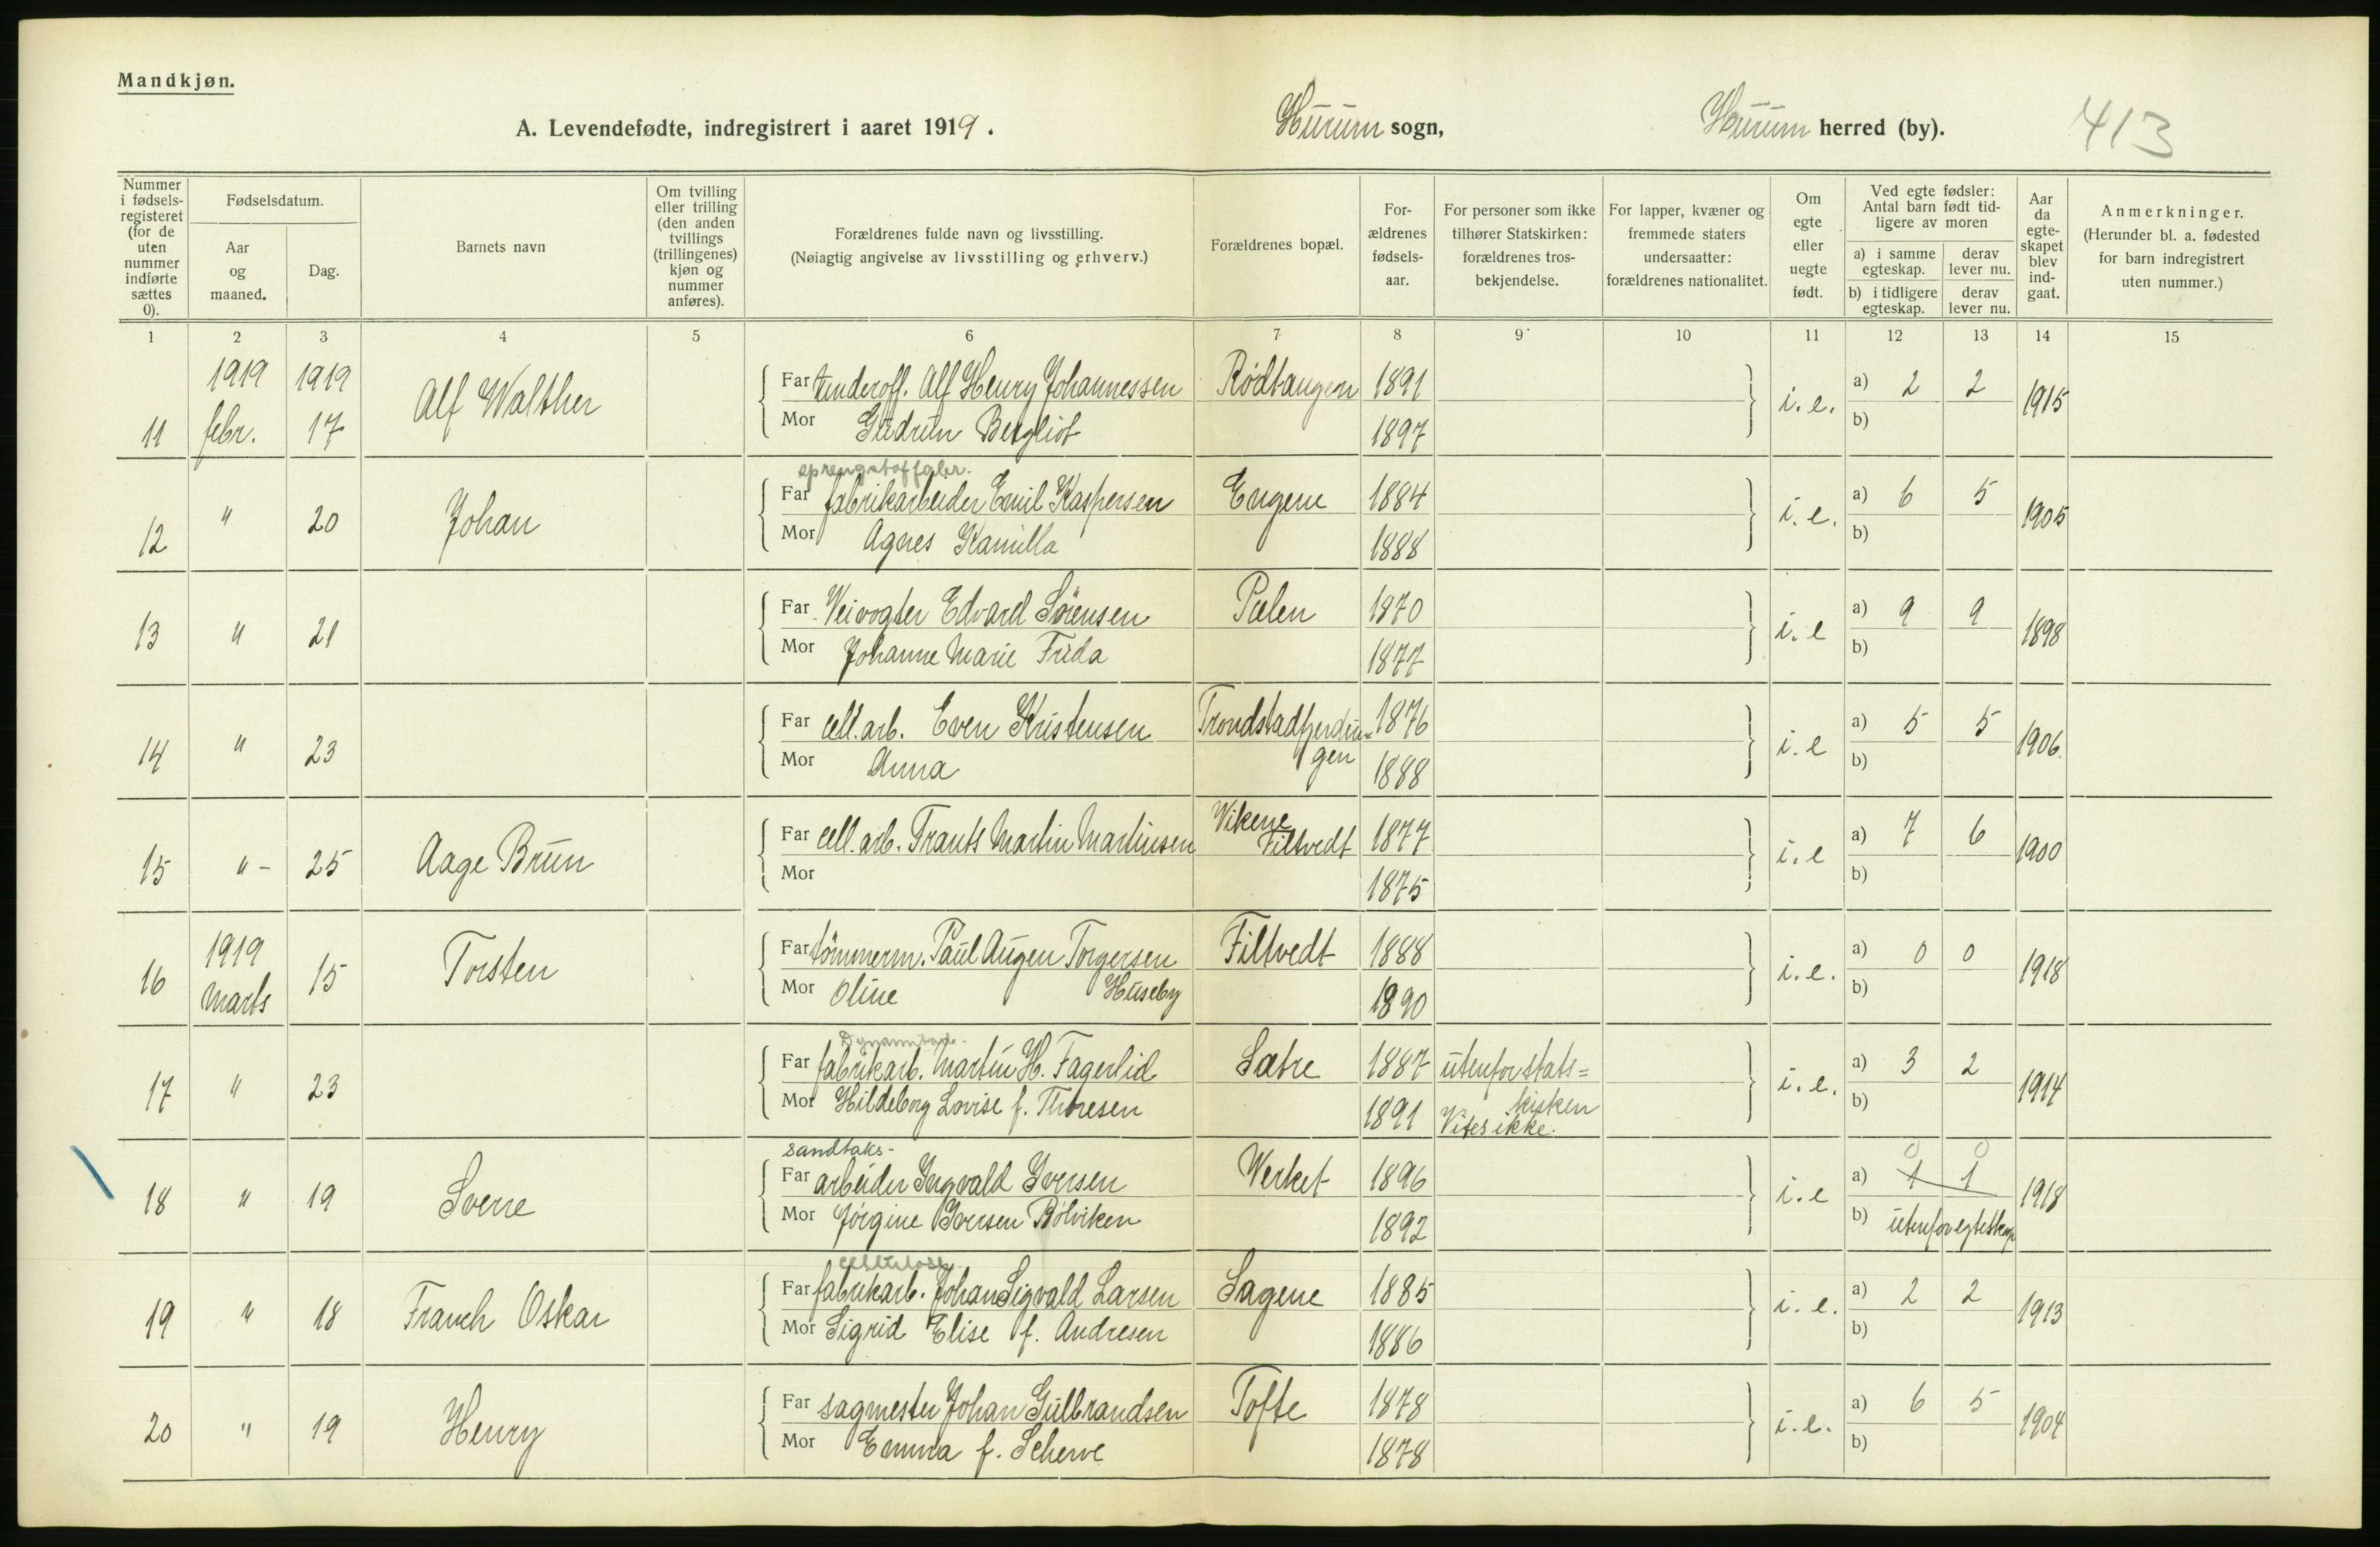 Mandkjøn.
A. Levendefødte, indregistrert i aaret 1919. Hurum sogn, Hurum herred (by). 413
Nummer i fødsels-registeret (for de uten nummer indførte sættes 0).
Fødselsdatum.
Aar og maaned.
Dag.
Barnets navn
Om tvilling eller trilling (den anden tvillings (trillingenes) kjøn og nummer anføres).
Forældrenes fulde navn og livsstilling.
(Nøiagtig angivelse av livsstilling og erhverv.)
Forældrenes bopæl.
For-ældrenes fødsels-aar.
For personer som ikke tilhører Statskirken: forældrenes tros-bekjendelse.
For lapper, kvæner og fremmede staters undersaatter: forældrenes nationalitet.
Om egte eller uegte født.
Ved egte fødsler: Antal barn født tid-ligere av moren
a) i samme egteskap. derav lever nu.
b) i tidligere egteskap. derav lever nu.
Aar da egte-skapet blev ind-gaat.
Anmerkninger.
(Herunder bl. a. fødested for barn indregistrert uten nummer.)
1 2 3 4 5 6 7 8 9 10 11 12 13 14 15
1919 1919
11 febr. 17 Alf Walther
Far Underoff. Alf Henry Johannessen Rødtangen 1891 i. e. a) 2 2 1915
Mor Gudrun Bergliot 1897 b)
sprengstoffabr.
12 " 20 Johan
Far fabrikarbeider Emil Kaspersen Engene 1884 i. e. a) 6 5 1905
Mor Agnes Kamilla 1888 b)
13 " 21
Far Veivogter Edvard Sörensen Pælen 1870 i. e a) 9 9 1898
Mor Johanne Marie Frida 1877 b)
14 " 23
Far cell. arb. Even Kristensen Trondstadfjerdin- 1876 i. e a) 5 5 1906.
Mor Anna gen 1888 b)
15 " - 25 Aage Brun
Far cell. arb. Frants Martin Martinsen Vikene Filtvedt 1877 i. e a) 7 6 1900
Mor 1875 b)
1919
16 Marts 15 Torsten
Far tömmerm. Paul Augen Torgersen Filtvedt 1888 i. e. a) 0 0 1918
Mor Oline Huseby 1890 b)
Dynamitfab.
17 " 23
Far fabrikarb. Martin H. Fagerlid Sætre 1887 utenfor stats= i. e. a) 3 2 1914
kirken
Mor Hildeborg Lovise f. Thoresen 1891 Vites ikke. b)
sandtaks- 0 0
18 " 19 Sverre
Far arbeider Ingvald Iversen Verket 1896 i. e a) 1 1 1918
Mor Jörgine Iversen Bölviken 1892 b) utenfor egteskap
cellulose
19 " 18 Franch Oskar
Far fabrikarb. Johan Sigvald Larsen Sagene 1885 i. e. a) 2 2 1913
Mor Sigrid Elise f. Andresen 1886 b)
20 " 19 Henry
Far sagmester Johan Gulbrandsen Tofte 1878 i. e. a) 6 5 1904
Mor Emma f. Scherve 1878 b)